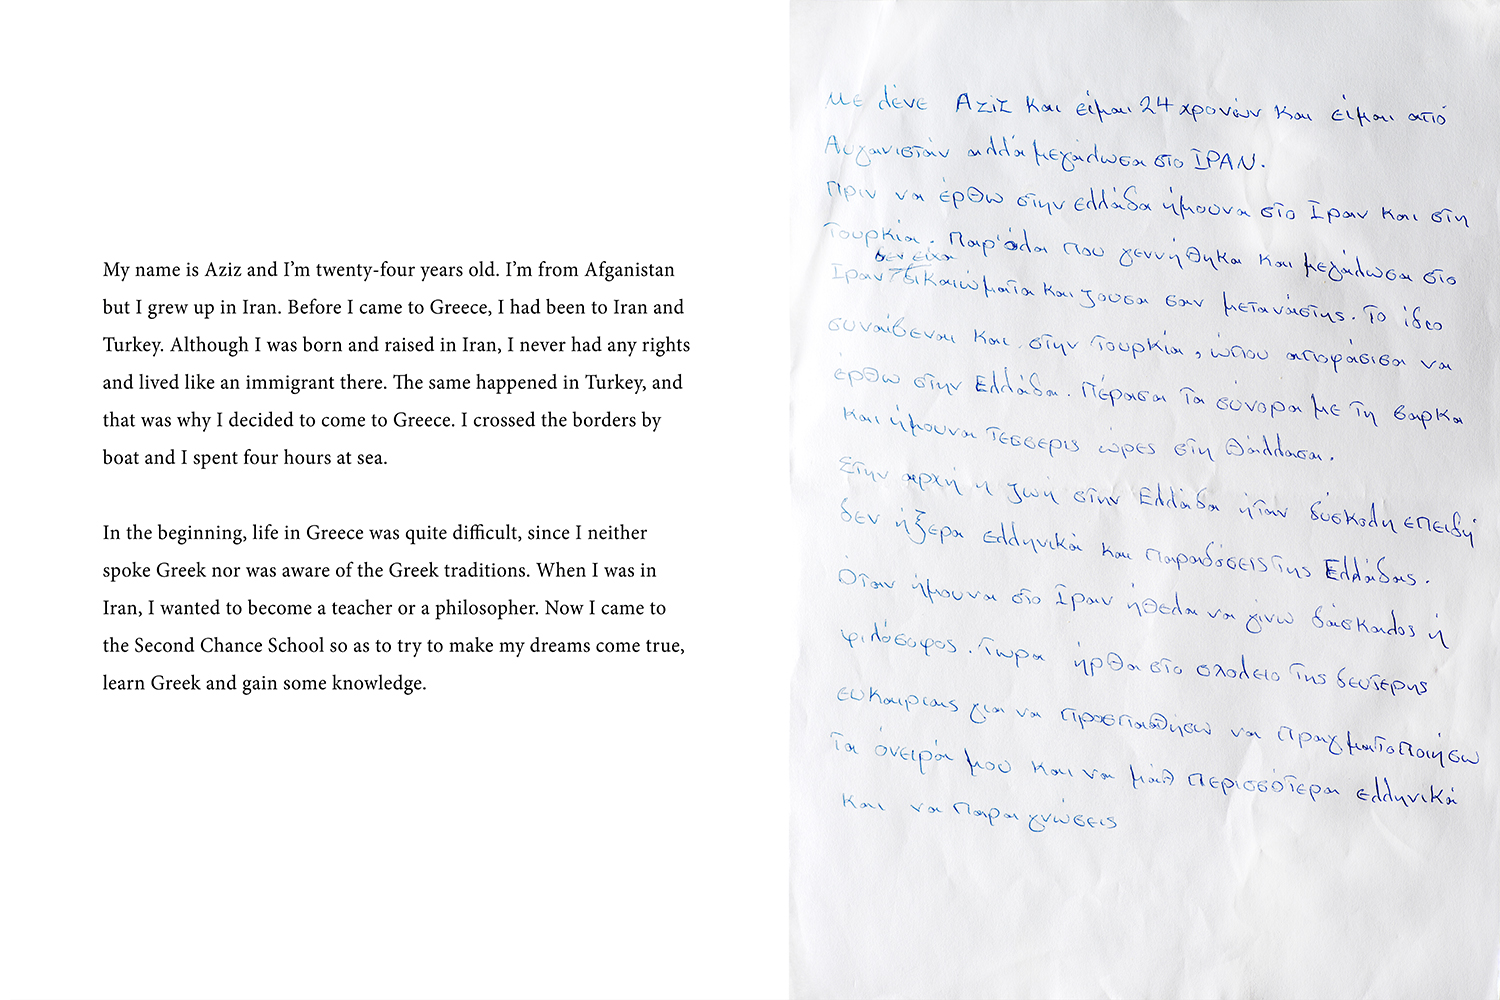 My name is Aziz and I’m twenty-four years old. I’m from Afganistan
but I grew up in Iran. Before I came to Greece, I had been to Iran and
Turkey. Although I was born and raised in Iran, I never had any rights
and lived like an immigrant there. The same happened in Turkey, and
that was why I decided to come to Greece. I crossed the borders by
boat and I spent four hours at sea.
In the beginning, life in Greece was quite difficult, since I neither
spoke Greek nor was aware of the Greek traditions. When I was in
Iran, I wanted to become a teacher or a philosopher. Now I came to
the Second Chance School so as to try to make my dreams come true,
learn Greek and gain some knowledge.
Με λένε Αζίζ και είμαι 24 χρονών και είμαι από
Αυγανιστάν αλλά μεγάλωσα στο ΙΡΑΝ.
Πριν να έρθω στην Ελλάδα ήμουνα στο Ιραν και στη
Τουρκία. Παρ'όλα που γεννήθηκα και μεγάλωσα στο
δεν είχα
Ιραν δικαιώματα και ζουσα σαν μετανάστης. Το ίδιο
συναίβεναι και στην Τουρκία, ώπου αποφάσισα να
έρθω στην Ελλάδα. Πέρασα τα σύνορα με τη βαρκα
και ήμουνα τέσσερις ώρες στη θάλλασα.
Στην αρχή η ζωή στην Ελλάδα ήταν δύσκολη επειδή
δεν ήξερα ελληνικά και παραδόσεις της Ελλάδας.
Όταν ήμουνα στο Ιραν ήθελα να γίνω δάσκαλος ή
φιλόσοφος. Τωρα ήρθα στο σχολειο της δευτερης
ευκαιριας για να προσπαθήσω να πραγματοποιήσω
τα όνειρά μου και να μάθ περισσότερα ελληνικά
και να παρα γνώσεις